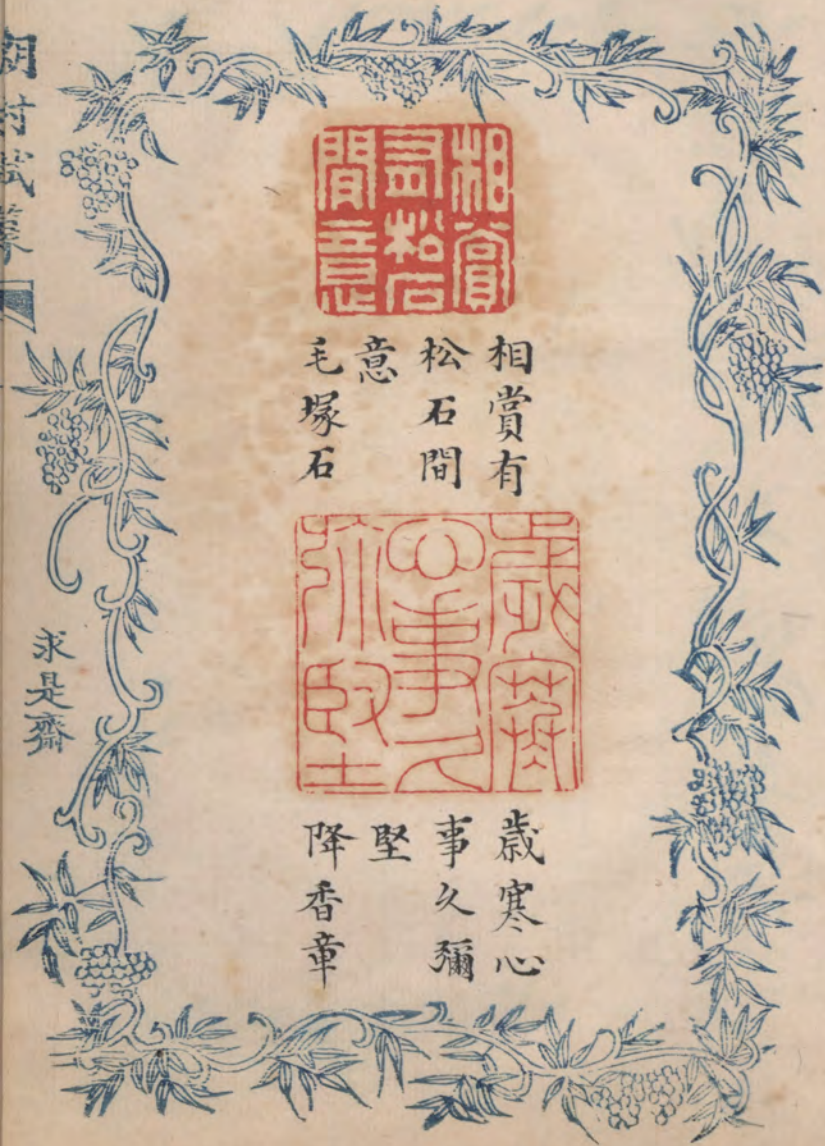 相賞
有松石
間意
相賞有
松石間
意
毛塚石
歲寒
心事久
彌堅
歲寒心
事久彌
堅
降香章
求是齋